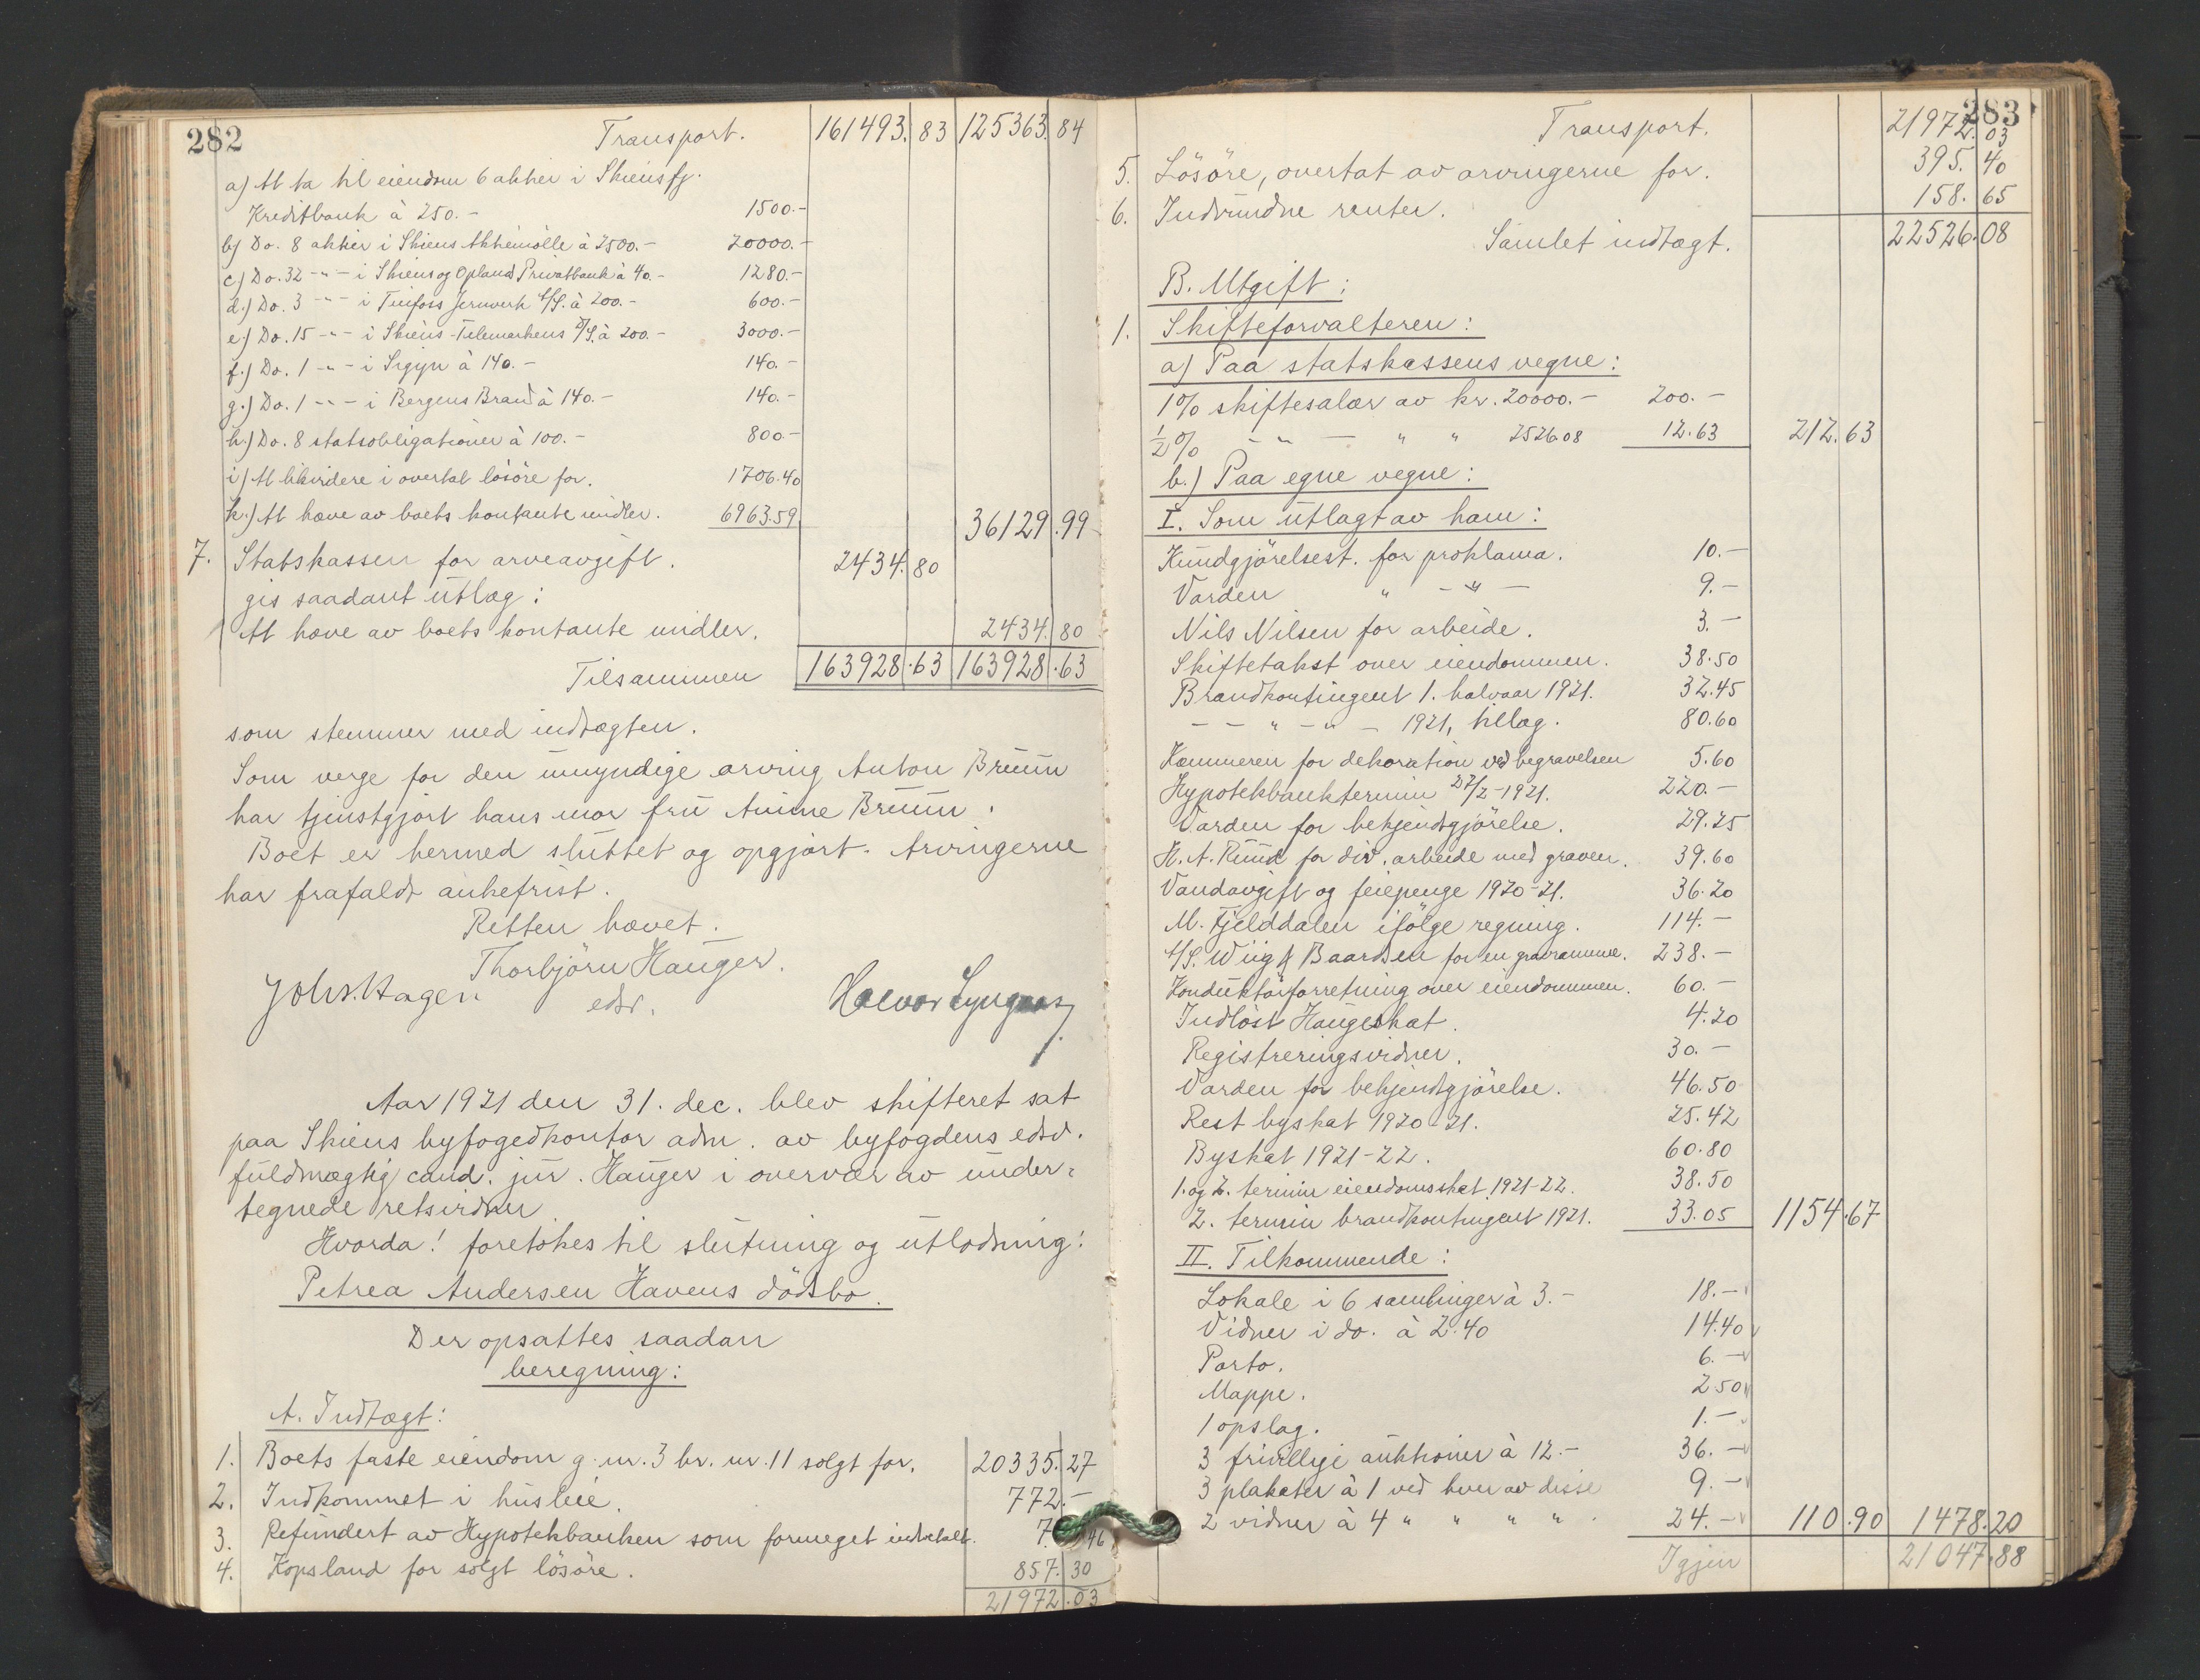 282
Transport. 161493.83 125363.84
a) At ta til eiendom 6 aktier i Skiensfj.
Kreditbank à 250.- 1500.-
b) Do. 8 aktier i Skiens Aktiemölle à 2500.- 20000.-
c) Do. 32 -"- i Skiens og Oplands Privatbank à 40.- 1280.-
d.) Do. 3 -"- i Tinfoss Jernverk A/S. à 200.- 600.-
e) Do. 15 -"- i Skiens-Telemarkens A/S. à 200.- 3000.-
f.) Do. 1 -"- i Sigyn à 140.- 140.-
g.) Do. 1 -"- i Bergens Brand à 140.- 140.-
h.) Do. 8 statsobligationer à 100.- 800.-
i) At likvidere i overtat lösöre for. 1706.40
k.) At hæve av boets kontante midler. 6963.59 36129.99
7. Statskassen for arveavgift. 2434.80
gis saadant utlæg:
At hæve av boets kontante midler. 2434.80
Tilsammen 163928.63 163928.63
som stemmer med indtægten.
Som verge for den umyndige arving Anton Bruun
har tjenstgjort hans mor fru Anine Bruun.
Boet er hermed sluttet og opgjort. Arvingerne
har frafaldt ankefrist.
Retten hævet.
Thorbjörn Hauger.
edsv.
Johs. Hagen Halvor Lyngaas
Aar 1921 den 31. dec. blev skifteret sat
paa Skiens byfogedkontor adm. av byfogdens edsv.
fuldmægtig cand. jur. Hauger i overvær av under=
tegnede retsvidner
Hvorda! foretokes til slutning og utlodning:
Petrea Andersen Havens dödsbo.
Der opsattes saadan
beregning:
A. Indtægt:
1. Boets faste eiendom g. nr. 3 br. nr. 11 solgt for. 20335.27
2. Indkommet i husleie. 772.-
3. Refundert av Hypotekbanken som formeget indbetalt. 7.46
4. Kopsland for solgt lösöre. 857.30
21972.03
283
Transport. 21972.03
5. Lösöre, overtat av arvingerne for. 395.40
6. Indvundne renter. 158.65
Samlet indtægt. 22526.08
B. Utgift:
1. Skifteforvalteren:
a) Paa statskassens vegne:
1% skiftesalær av kr. 20000.- 200.-
½% -"- — " " 2526.08 12.63 212.63
b.) Paa egne vegne:
I. Som utlagt av ham:
Kundgjörelsest. for proklama. 10.-
Varden " -"- 9.-
Nils Nilsen for arbeide. 3.-
Skiftetakst over eiendommen. 38.50
Brandkontingent 1. halvaar 1921. 32.45
- - " - " - 1921, tillæg. 80.60
Kæmneren for dekoration ved begravelsen 5.60
Hypotekbanktermin 27/2-1921. 220.-
Varden for bekjendtgjörelse. 29.25
H. A. Ruud for div. arbeide med graven. 39.60
Vandavgift og feiepenge 1920-21. 36.20
M. Fjelddalen ifölge regning. 114.-
A/S. Wiig & Baardsen for en gravramme. 238.-
Konduktörforretning over eiendommen. 60.-
Indlöst Haugeskat. 4.20
Registreringsvidner. 30.-
Varden for bekjendtgjörelse. 46.50
Rest byskat 1920-21. 25.42
Byskat 1921-22. 60.80
1. og 2. termin eiendomsskat 1921-22. 38.50
2. termin brandkontingent 1921. 33.05 1154.67
II. Tilkommende:
Lokale i 6 samlinger à 3.- 18.-
Vidner i do. à 2.40 14.40
Porto. 6.-
Mappe. 2.50
1 opslag. 1.-
3 frivillige auktioner à 12.- 36.-
3 plakater à 1 ved hver av disse 9.-
2 vidner à 4 " " " " . 24.- 110.90 1478.20
Igjen 21047.88